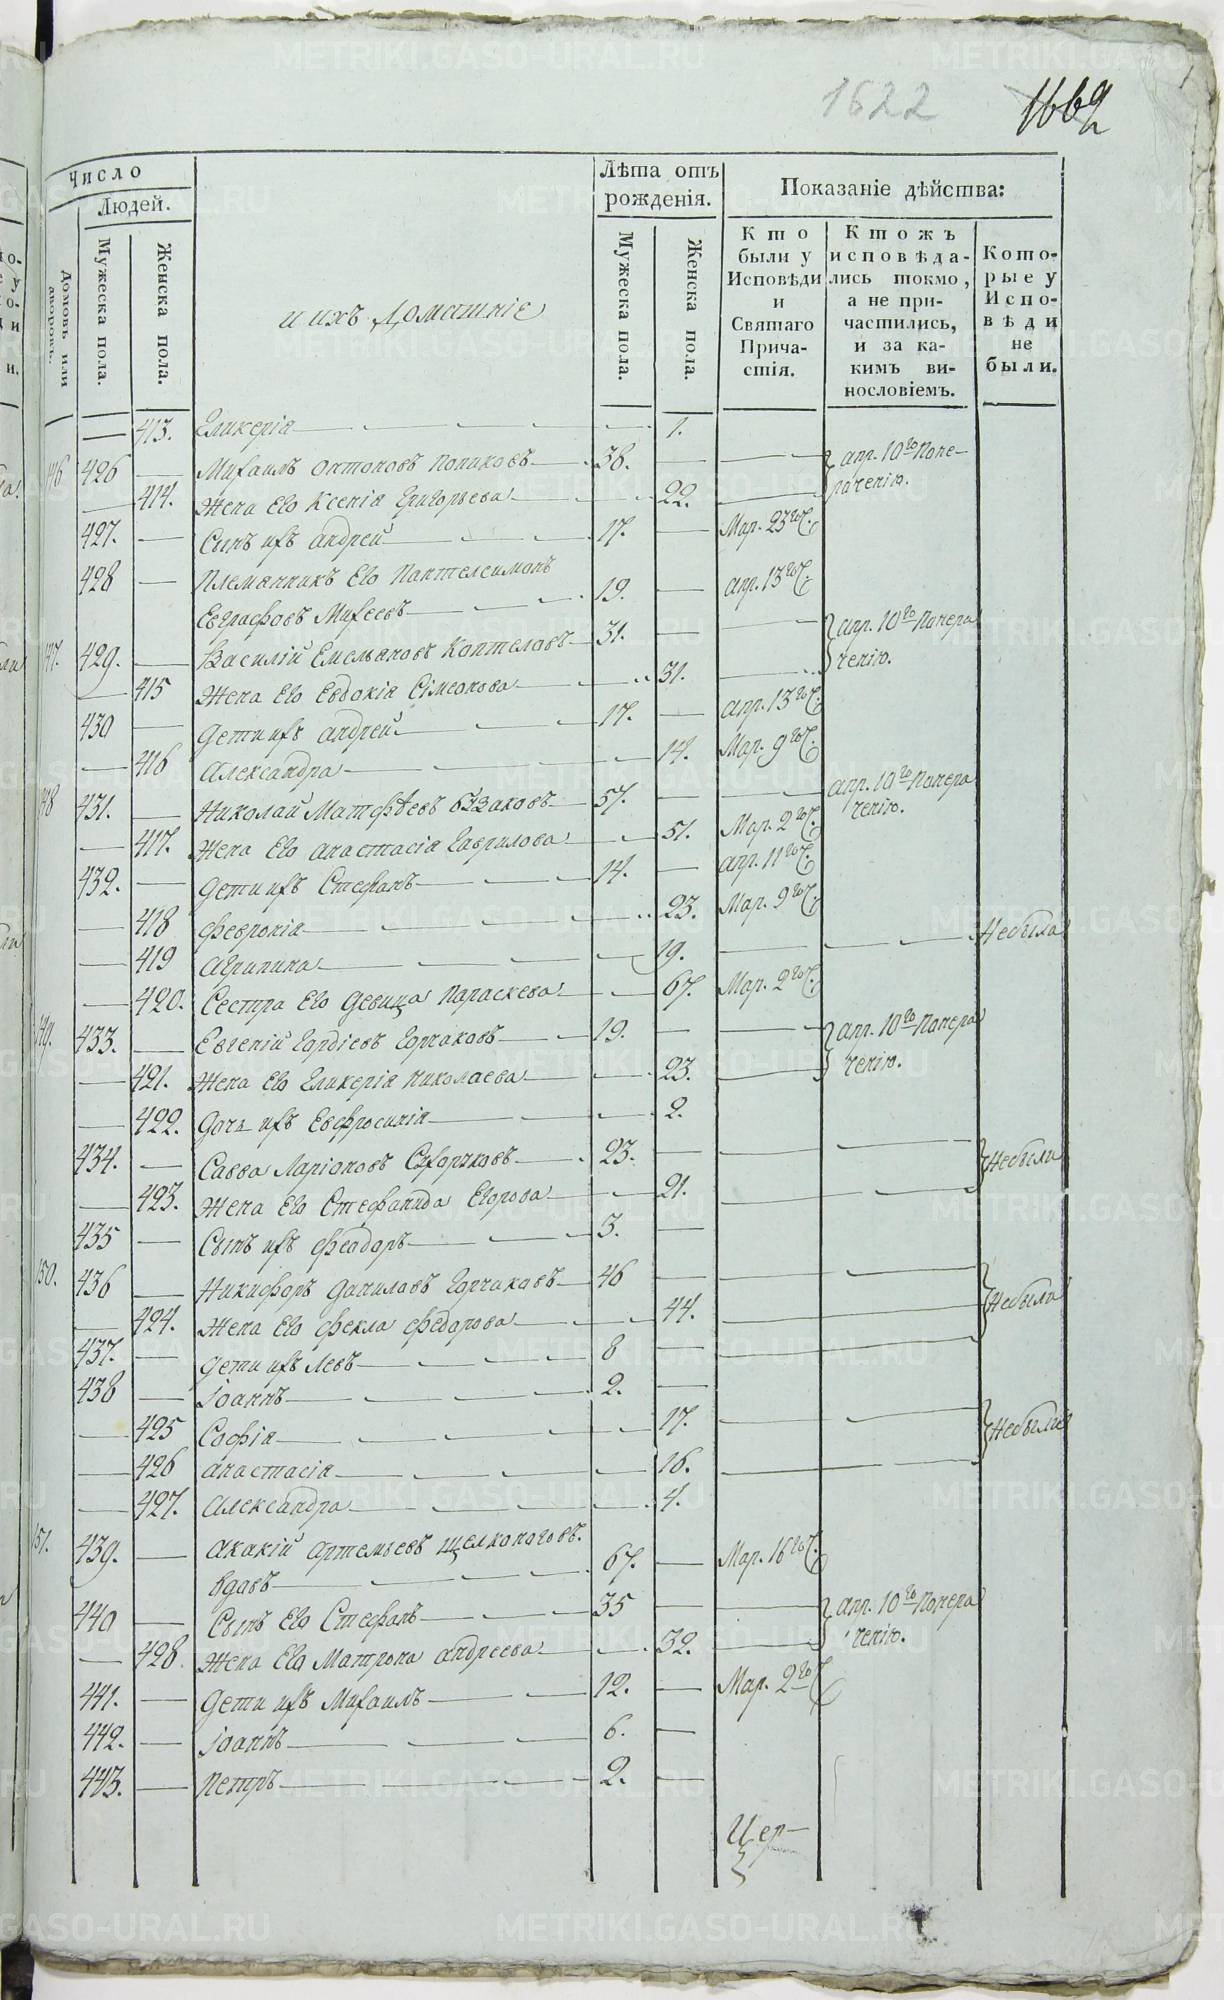 1622
1662
Число
Людей.
Домовъ или дворовъ.
Мужеска пола.
Женска пола.
и ихъ Домашніе
Лѣта отъ рожденія.
Мужеска пола.
Женска пола.
Показаніе дѣйства:
Кто были у Исповѣди и Святаго Причастія.
Ктожъ исповѣдались токмо, а не причастились, и за какимъ винословіемъ.
Которые у Исповѣди не были.
— 413. Гликерія — 1.
146 426 — Михаилъ Антоновъ Поповъ — 38. — апр. 10го Попе-
— 414. Жена Его Ксенія Григорьева — 22. — раченію.
427. — Сынъ ихъ Андрей — 17. — Мар. 23го
428 — Племянникъ Его Пантелеимонъ
Евграфовъ Михеевъ — 19. — апр. 13го
147. 429. — Василій Емельяновъ Коптеловъ — 31. — апр. 10го Попера
— 415 Жена Его Евдокія Сімеонова — 31. — ченію.
430 — Дети ихъ Андрей — 17. — апр. 13го
— 416 Александра — 14. Мар. 9го
148 431. — Николай Матфѣевъ Бузаковъ — 57. — апр. 10го Попера
ченію.
— 417. Жена Его Анастасія Гаврилова — 51. Мар. 2го
432. — Дети ихъ Стефанъ — 14. — апр. 11го
— 418 Февронія — 23. Мар. 9го
— 419 Агрипина — 19. — Небыла
— 420. Сестра Его Девица Параскева — 67. Мар. 2го
149. 433. — Евгеній Гордіевъ Горчаковъ — 19. — апр. 10го Попера
— 421. Жена Его Гликерія Николаева — 23. — ченію.
— 422. Дочь ихъ Евфросинія — 2.
434. — Савва Ларіоновъ — 23. — Небыли
— 423. Жена Его Стефанида Егорова — 21.
435 — Сынъ ихъ Феодоръ — 3. —
150. 436 — Никифоръ Даниловъ Горчаковъ — 46 — Небыли
— 424. Жена Его Фекла Федорова — 44.
437. — Дети ихъ Левъ — 8 —
438 — Іоаннъ — 2. —
— 425 Софія — 17. — Небыли
— 426 Анастасія — 16. —
— 427. Александра — 4.
151. 439. — Акакій Артемьевъ Щелконоговъ.
вдовъ — 67. — Мар. 16го
440 — Сынъ Его Стефанъ — 35 — апр. 10го Попера
— 428. Жена Его Матрона Андреева — 32. — ченію.
441. — Дети ихъ Михаилъ — 12. — Мар. 2го
442. — Іоаннъ — 6. —
443. — Петръ — 2. —
Цер-
METRIKI.GASO-URAL.RU